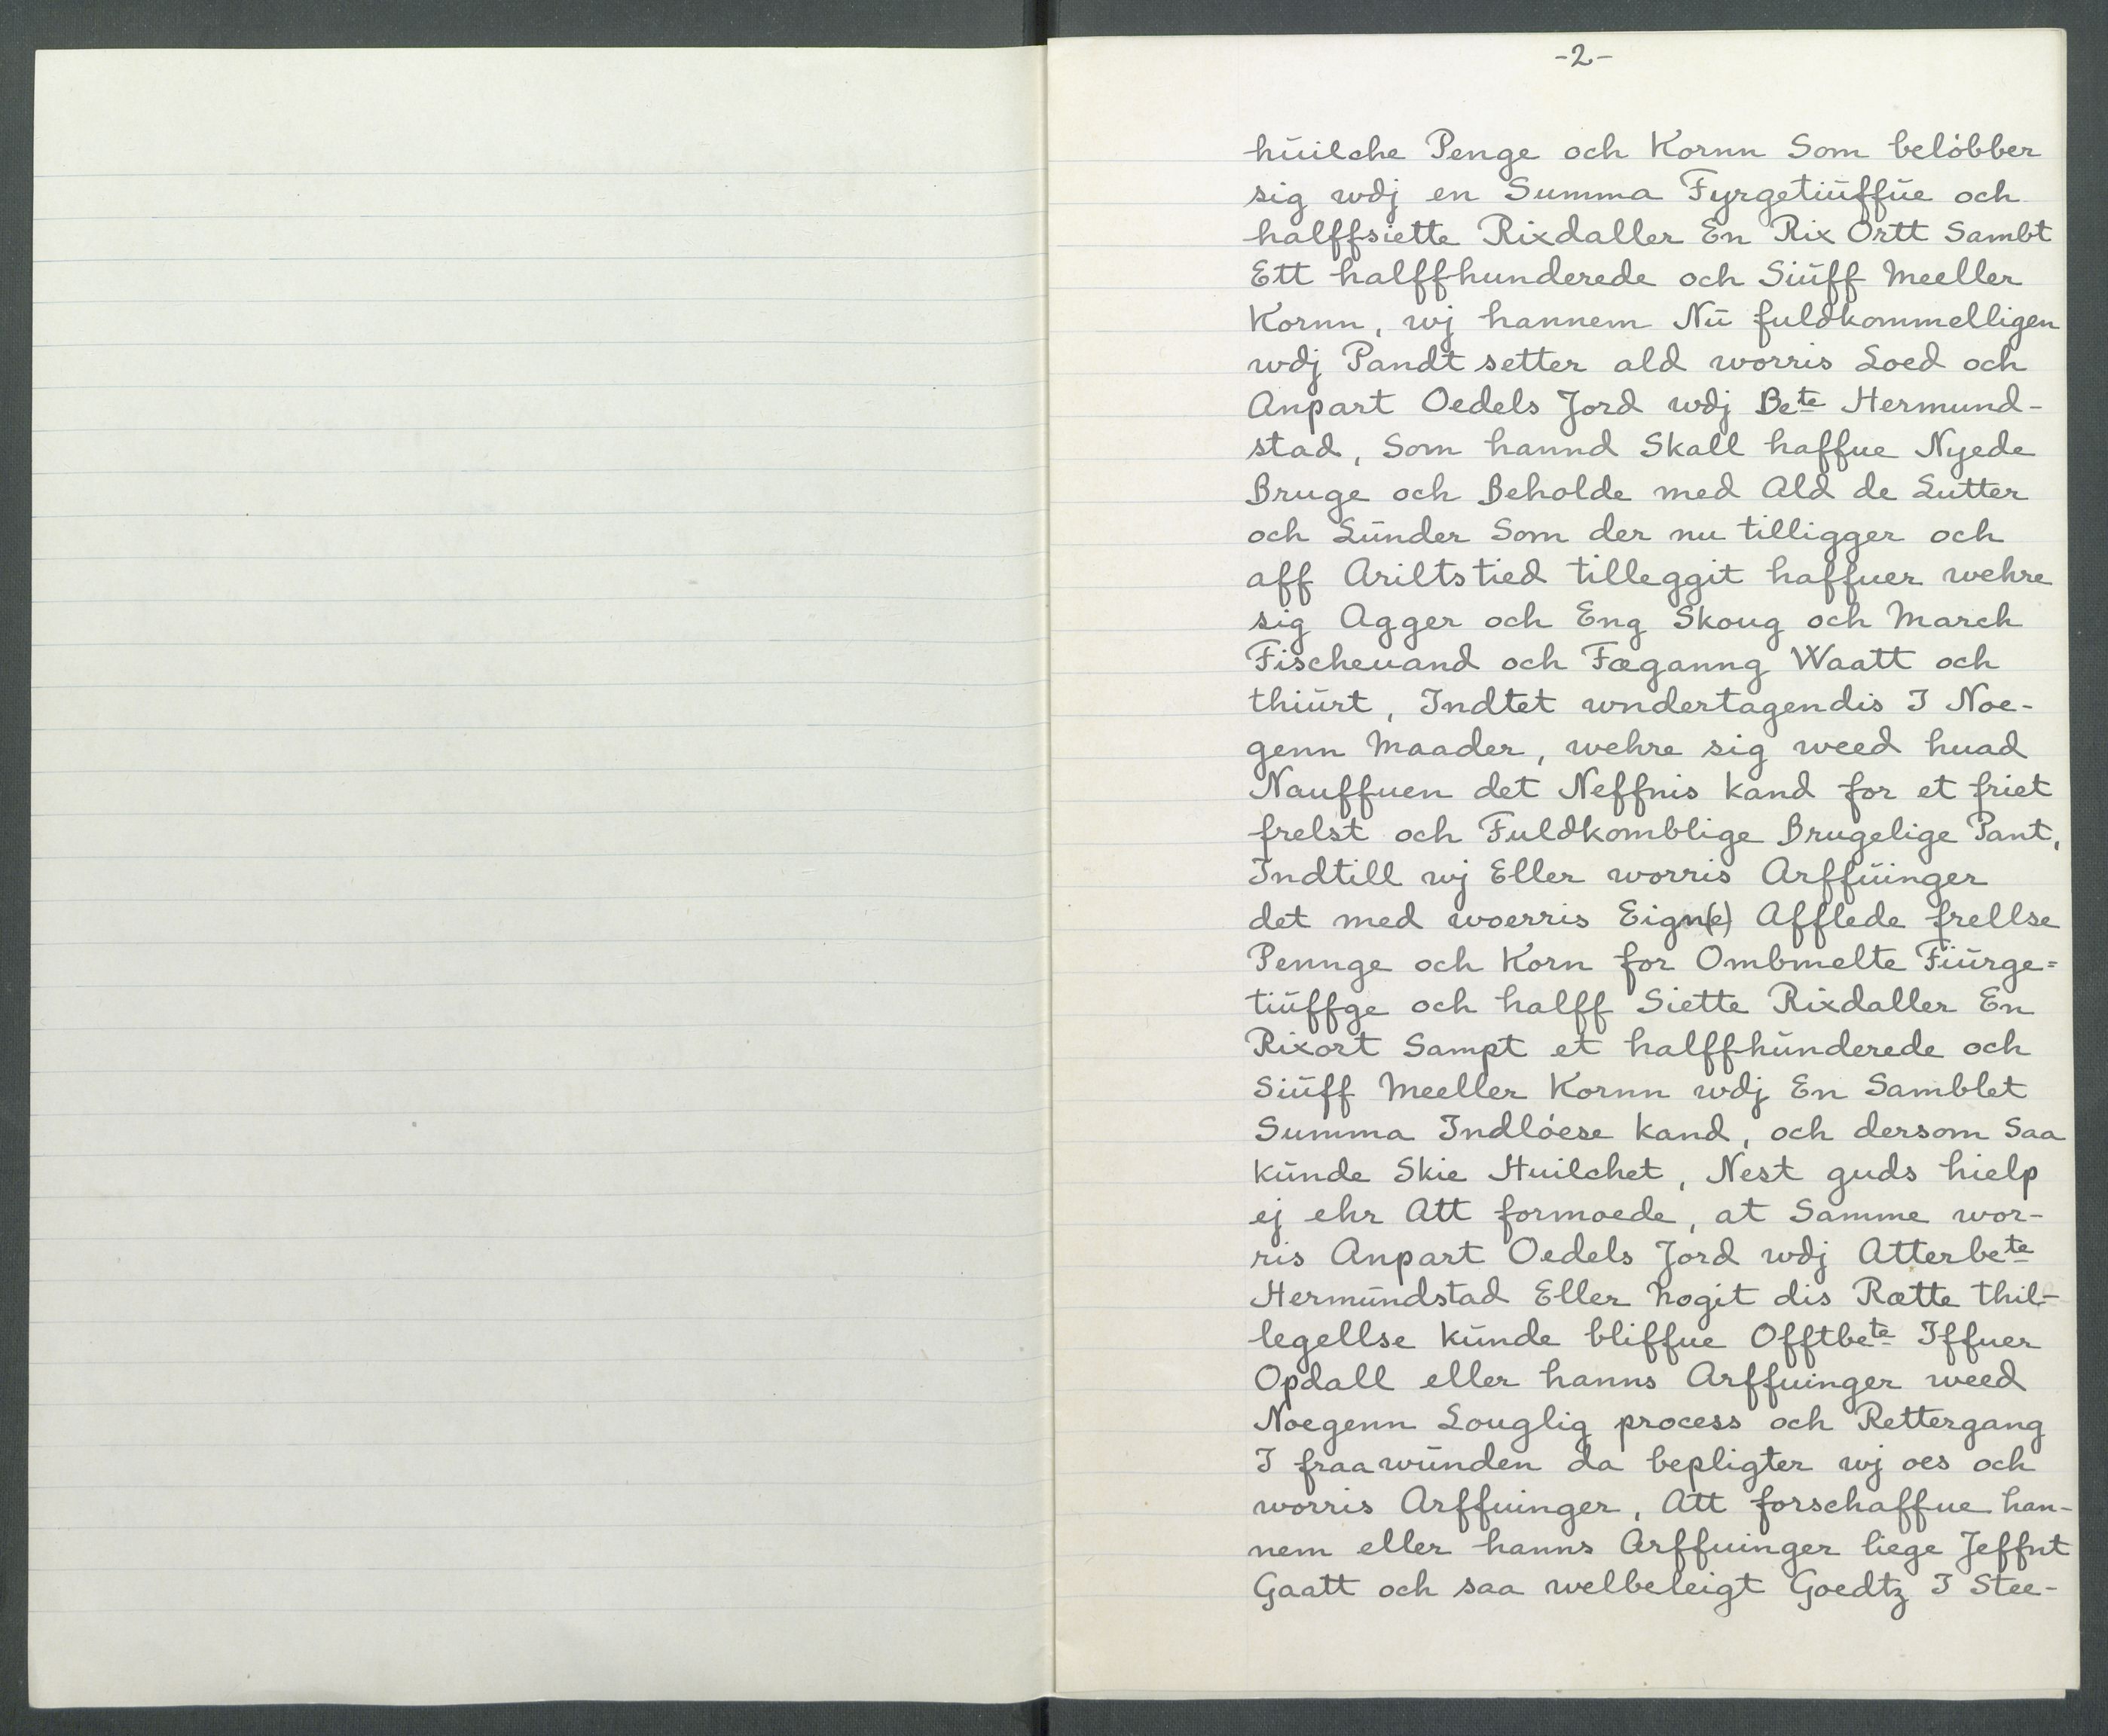 -2-
hūilche Penge och Kornn Som belòbber
sig wdj en Summa Fyrgetiūffūe och
halffsiette Rixdaller En Rix Ortt Sambt
Ett halffhunderede och Siūff Meeller
Kornn, wj hannem Nū fuldkommelligen
wdj Pandt setter ald worris Loed och
Anpart Oedels Jord wdj Bete Hermund-
stad, Som hannd Skall haffue Nyede
Bruge och Beholde med Ald de Lutter
och Lūnder Som der nu tilligger och
aff Ariltstied tilleggit haffuer wehre
sig Agger och Eng Skoug och March
Fischeuand och Fæganng Waatt och
thiūrt, Indtet wndertagendis I Noe-
genn Maader, wehre sig weed huad
Nauffuen det Neffnis kand for et friet
frelst och Fuldkomblige Brugelige Pant,
Indtill wj Eller worris Arffūinger
det med woerris Eign(e) Afflede frellse
Pennge och Korn for Ombmelte Fiūrge=
tiūffge och halff Siette Rixdaller En
Rixort Sampt et halffhūnderede och
Siūff Meeller Kornn wdj En Samblet
Summa Indlòese kand, och dersom Saa
kūnde Skie Huilchet, Nest guds hielp
ej ehr Att formoede, at Samme wor-
ris Anpart Oedels Jord wdj Atterbete
Hermūndstad Eller Nogit dis Rætte thil-
legellse kūnde bliffue Offtbete Iffuer
Opdall eller hanns Arffuinger weed
Noegenn Louglig process och Rettergang
I fraawūnden da bepligter wj oes och
worris Arffuinger, Att forschaffue han-
nem eller hanns Arffuinger liege Jeffnt
Gaatt och saa welbeleigt Goedtz I Stee-